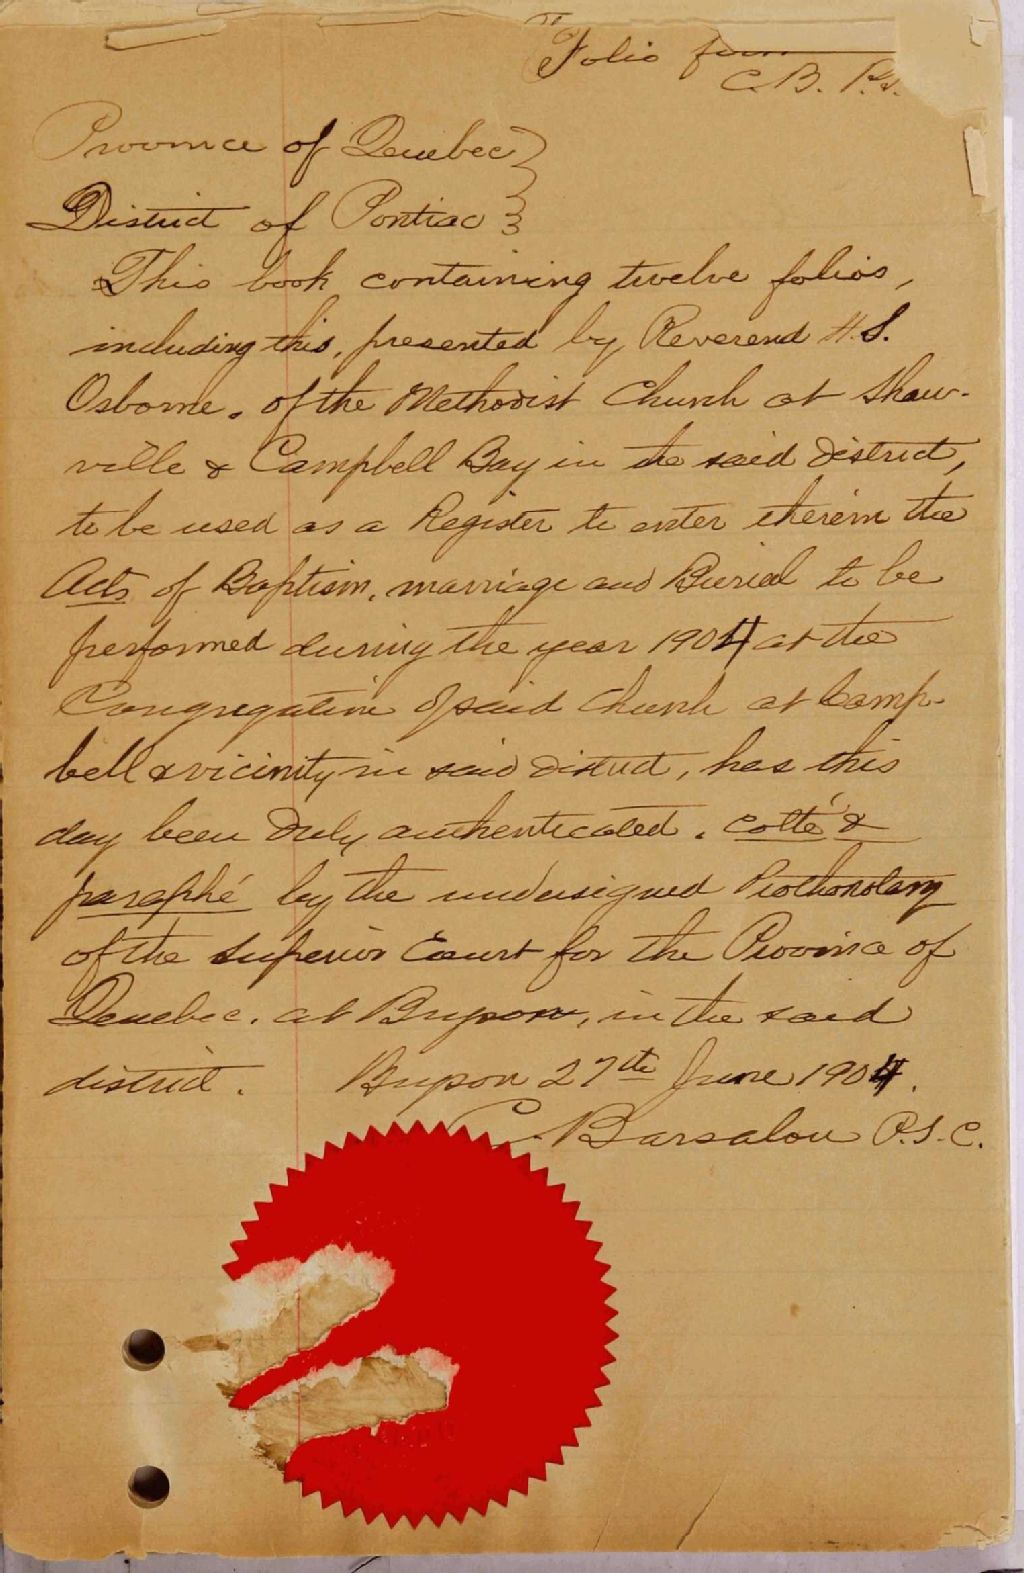 Folio
C. B. P.S.
Province of Quebec }
District of Pontiac }
This book containing twelve folios,
including this, presented by Reverend H.S.
Osborne, of the Methodist Church at Shaw-
ville & Campbell Bay in the said District,
to be used as a Register to enter therein the
Acts of Baptism, marriage and Burial to be
performed during the year 1904 at the
Congregation of said Church at Camp-
bell & vicinity in said District, has this
day been duly authenticated, cotté &
paraphé by the undersigned Prothonotary
of the Superior Court for the Province of
Quebec, at Bryson, in the said
district. Bryson 27th June 1904.
C. Barsalou P.S.C.